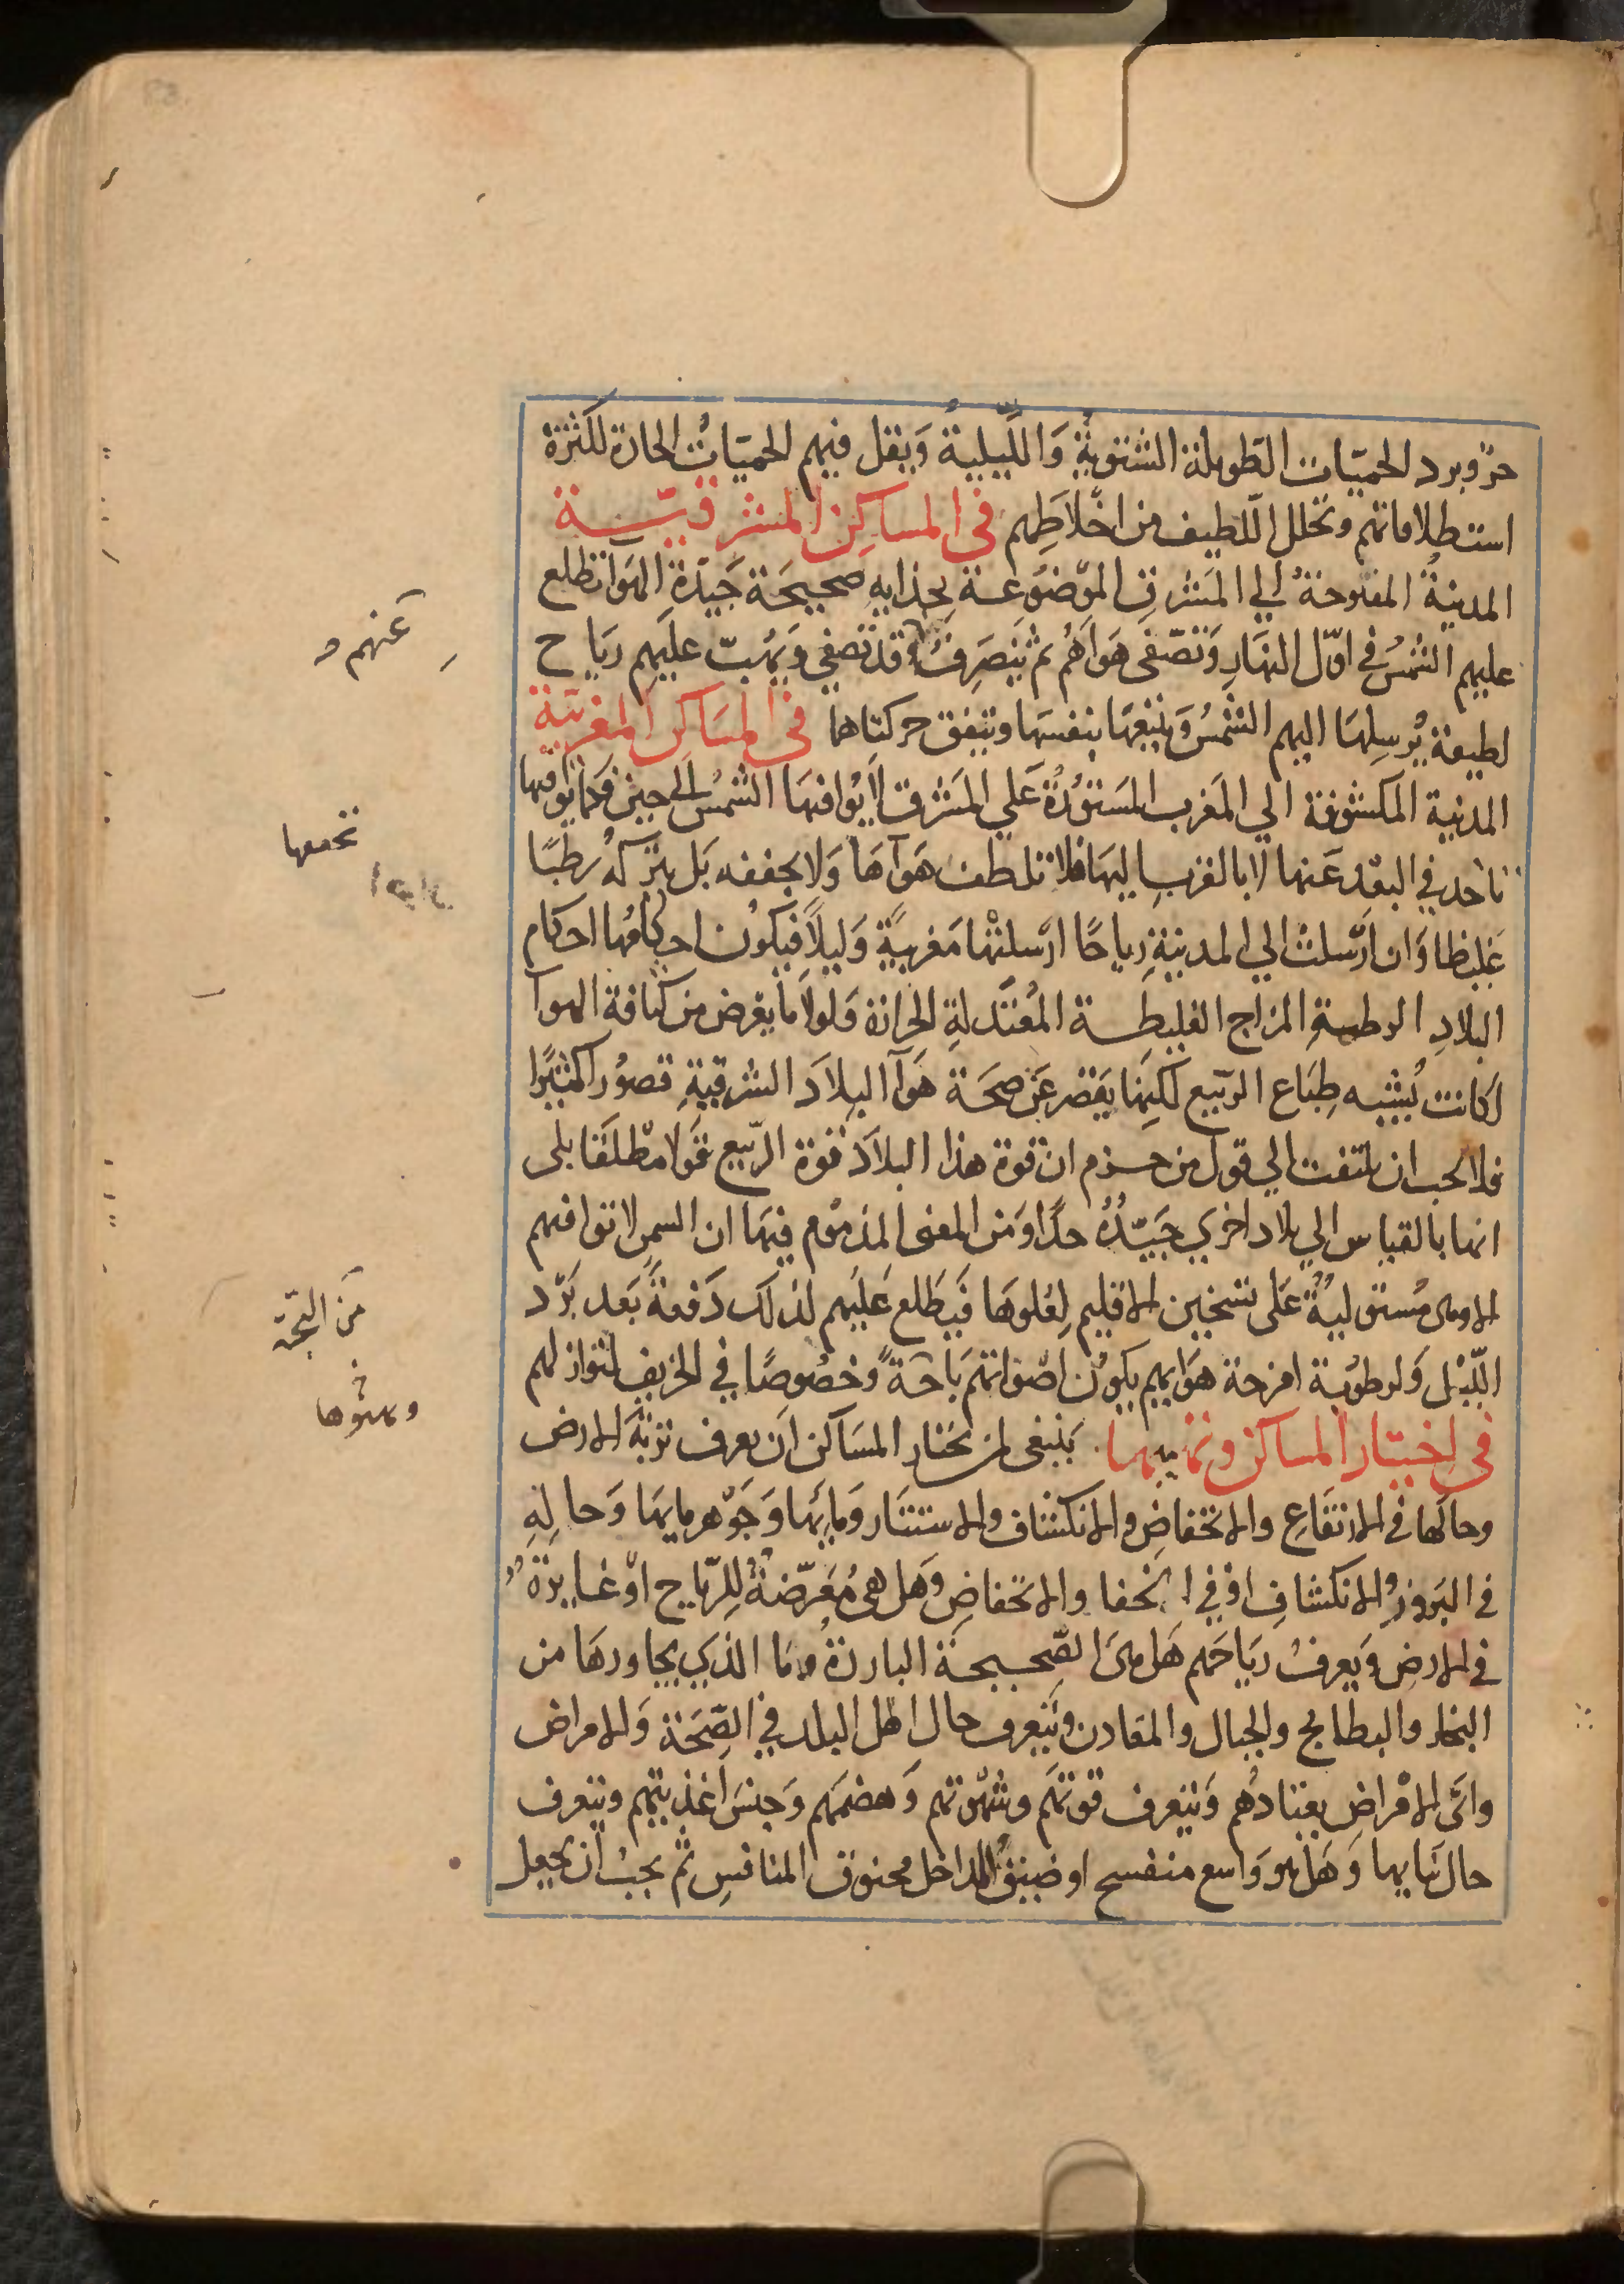 حرّ وبرد الحميّات الطويلة الشتويةِ وَاللّيليةُ وَيقل فيهم الحميّات الحادة لكثرة
استطلاقاتهم وتحلل اللّطيف من اخلاطِهم في المساكِن المشرقيّة
المدينةُ المفتوحةُ الي المَشرق الموضوعة بحذايهِ صحيحَة جَيّدَة الهَوا تطلع
عليهم الشمسُ في اوّل النهارِ وَتصّفى هوَاهُم ثم ينصَرِف وقد تصفي وَيهُبّ عليَهِم ريَاح
لطيفة يُرسِلهَا اليهم الشمْسُ وَيتبعهَا بنفسَها وتتفق حركتاهما في المسَاكِن المغربيّة
المدينية المكشوفة الي المَغرب المستورُةُ عَلي المَشرق لا يُوافيهَا الشمسُ الي حين وكما يُوافيها
تاخد في البعْد عَنها لا بالقربِ اليهَا فلا تلطف هَوآهَا وَلا يجففه بَل يتركُهُ رَطبًا
غَليظا وَان ارْسَلتْ الي المدينةِ رياحًا ارْسَلتْهَا مَغربيًةٍ وَليلًا فيَكوُن احكامُها احكام
البلادِ الرطبةِ المزاج الغليظة المُعتَدلةِ الحرارة وَلولَا ما يعْرض من كثافة الهوآ
لكانت يُشبه طِبَاع الربيع لكِنِها يَقصر عَن صِحَة هَوآ البِلاَد الشرقيةِ قصوُرا كثيرًا
فلا يجب ان يلتفت الي قول من جزم ان قوة هذا البلاَد قوة الربيع قَولا مطْلقًا بلى
انها بالقياس الي بلاد اخري جَيّدُهُ جدًا وَمن المعنى المذمْوم فيهَا ان الشمس لا توافيهم
الا وهى مُستوليةٌ عَلى تسْخين الاقليم لِعُلوهَا فيَطلع عَليَهم لذلك دَفعةً بَعد بَرْد
اللّيْل وَلرطوُبة امزجة هوَايهم يكوُن اصْوَاتهم بَاحَةً وخصُوصًا في الخريف لنوازلهم
في اختيار المساكن وتهيئها ينبغى لمن يختار المسَاكن ان يعرف تربَة الارض
وحالهَا في الارتفَاعِ والانخفاضِ والانكشاف والاستتار وَمايَها وَجَوْهر مايهَا وَحالهِ
في البَروزِ والانكشافِ او في انخفا والانخفاضِ وَهل هى مُعَرّضةُ لِلرّياحِ اوْ غايرَةُ
في الارضِ وَيعرف ريَاحَهم هَل هىَ الصّحيحَة البارِدةُ ومَا الذي يجاورهَا من
البخار والبطايح والجبال والمعَادن وَيتعرف حال اهْل البلد في الصِّحَة وَالامراض
واىّ الامْراضِ يعتادهُم وَيتعرف قوتهَم وشهْوتهم وَهضمهَم وَجنسَ اغذيتهم ويتعرف
حال مَايها وَهَل هو وَاسع منفسح او ضيقُ المداخل مخنوق المنافسِ ثم يجبُ ان يجعل
عَنهم
تحمعها
مَن البحّة